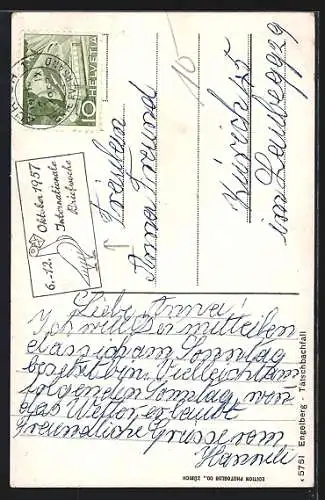 HELVETIA
10
6.-12. Oktober 1957
Internationale
Briefwoche
10
Fräulein
Anna Freund
Zürich 25
Liebe Anna!
Ich will Dir mitteilen
dass ich am Sonntag
besetzt bin. Vielleicht am
folgenden Sonntag, wenn
das Wetter erlaubt
Freundliche Grüsse von
Hanneli
5751 Engelberg - Tätschbachfall
EDITION PHOTOGLOB CO., ZÜRICH